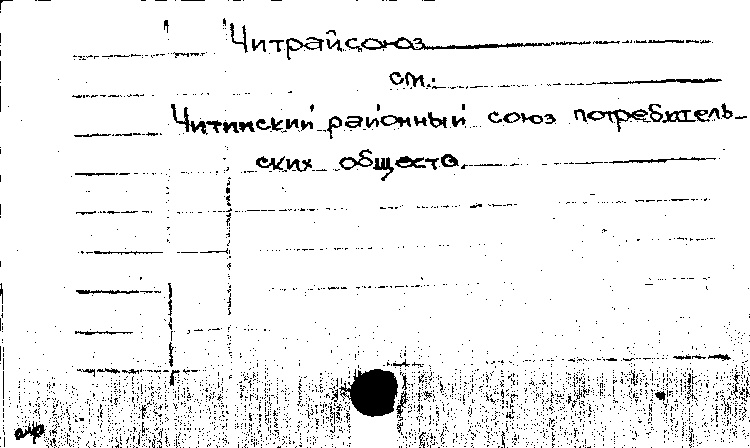 Читрайсоюз
см.:
Читинский районный союз потребитель-
ских обществ.